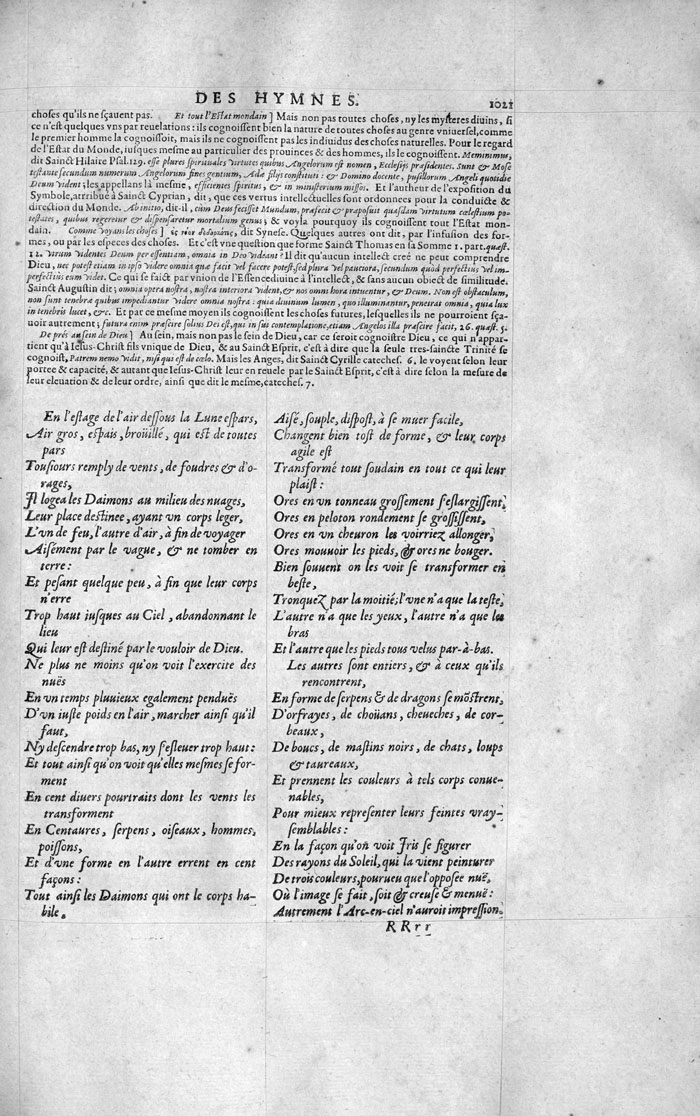 DES HYMNES. 1021
choses qu'ils ne sçauent pas. Et tout l'Estat mondain] Mais non pas toutes choses, ny les mysteres diuins, si
ce n'est quelques vns par reuelations: ils cognoissent bien la nature de toutes choses au genre vniuersel, comme
le premier homme la cognoissoit, mais ils ne cognoissent pas les indiuidus des choses naturelles. Pour le regard
de l'Estat du Monde, iusques mesme au particulier des prouinces & des hommes, ils le cognoissent. Meminimus,
dit Sainct Hilaire Psal. 129. esse plures spirituales virtutes quibus Angelorum est nomen, Ecclesijs præsidentes. Sunt & Mose
testante secundum numerum Angelorum fines gentium, Adæ filijs constituti: & Domino docente, pusillorum Angeli quotidie
Deum vident; les appellans là mesme, efficientes spiritus, & in ministerium missos. Et l'autheur de l'exposition du
Symbole, attribué à Sainct Cyprian, dit, que ces vertus intellectuelles sont ordonnees pour la conduicte &
direction du Monde. Ab initio, dit-il, cùm Deus fecisset Mundum, præfecit & præposuit quasdam virtutum cælestium po-
testates, quibus regeretur & dispensaretur mortalium genus; & voyla pourquoy ils cognoissent tout l'Estat mon-
dain. Comme voyans les choses] dit Synese. Quelques autres ont dit, par l'infusion des for-
mes, ou par les especes des choses. Et c'est vne question que forme Sainct Thomas en sa Somme 1. part. quæst.
12. Vtrum videntes Deum per essentiam, omnia in Deo videant? Il dit qu'aucun intellect creé ne peut comprendre
Dieu, nec potest etiam in ipso videre omnia quæ facit vel facere potest, sed plura vel pauciora, secundum quòd perfectiùs vel im-
perfectiùs eum videt. Ce qui se faict par vnion de l'Essence diuine à l'intellect, & sans aucun obiect de similitude.
Sainct Augustin dit; omnia opera nostra, nostra interiora vident, & nos omni hora intuentur, & Deum. Non est obstaculum,
non sunt tenebræ quibus impediantur videre omnia nostra: quia diuinum lumen, quo illuminantur, penetrat omnia, quia lux
in tenebris lucet, &c. Et par ce mesme moyen ils cognoissent les choses futures, lesquelles ils ne pourroient sça-
uoir autrement; futura enim præscire solius Dei est, qui in sui contemplatione, etiam Angelos illa præscire facit, 26. quæst. 5.
De prés au sein de Dieu] Au sein, mais non pas le sein de Dieu, car ce seroit cognoistre Dieu, ce qui n'appar-
tient qu'à Iesus-Christ fils vnique de Dieu, & au Sainct Esprit, c'est à dire que la seule tres-saincte Trinité se
cognoist, Patrem nemo vidit, nisi qui est de cælo. Mais les Anges, dit Sainct Cyrille cateches. 6. le voyent selon leur
portee & capacité, & autant que Iesus-Christ leur en reuele par le Sainct Esprit, c'est à dire selon la mesure de
leur eleuation & de leur ordre, ainsi que dit le mesme, cateches. 7.
En l'estage de l'air dessous la Lune espars,
Air gros, espais, broüillé, qui est de toutes
pars
Tousiours remply de vents, de foudres & d'o-
rages,
Il logea les Daimons au milieu des nuages,
Leur place destinee, ayant vn corps leger,
L'vn de feu, l'autre d'air, à fin de voyager
Aisément par le vague, & ne tomber en
terre:
Et pesant quelque peu, à fin que leur corps
n'erre
Trop haut iusques au Ciel, abandonnant le
lieu
Qui leur est destiné par le vouloir de Dieu.
Ne plus ne moins qu'on voit l'exercite des
nuës
En vn temps pluuieux egalement penduës
D'vn iuste poids en l'air, marcher ainsi qu'il
faut,
Ny descendre trop bas, ny s'esleuer trop haut:
Et tout ainsi qu'on voit qu'elles mesmes se for-
ment
En cent diuers pourtraits dont les vents les
transforment
En Centaures, serpens, oiseaux, hommes,
poissons,
Et d'vne forme en l'autre errent en cent
façons:
Tout ainsi les Daimons qui ont le corps ha-
bile,
Aisé, souple, dispost, à se muer facile,
Changent bien tost de forme, & leur corps
agile est
Transformé tout soudain en tout ce qui leur
plaist:
Ores en vn tonneau grossement s'eslargissent,
Ores en peloton rondement se grossissent,
Ores en vn cheuron les voirriez allonger,
Ores mouuoir les pieds, & ores ne bouger.
Bien souuent on les voit se transformer en
beste,
Tronquez par la moitié; l'vne n'a que la teste,
L'autre n'a que les yeux, l'autre n'a que les
bras
Et l'autre que les pieds tous velus par-à-bas.
Les autres sont entiers, & à ceux qu'ils
rencontrent,
En forme de serpens & de dragons se mõstrent,
D'orfrayes, de choüans, cheueches, de cor-
beaux,
De boucs, de mastins noirs, de chats, loups
& taureaux,
Et prennent les couleurs à tels corps conue-
nables,
Pour mieux representer leurs feintes vray-
semblables:
En la façon qu'on voit Iris se figurer
Des rayons du Soleil, qui la vient peinturer
De trois couleurs, pourueu que l'opposee nuë,
Où l'image se fait, soit & creuse & menuë:
Autrement l'Arc-en-ciel n'auroit impression.
RRrr